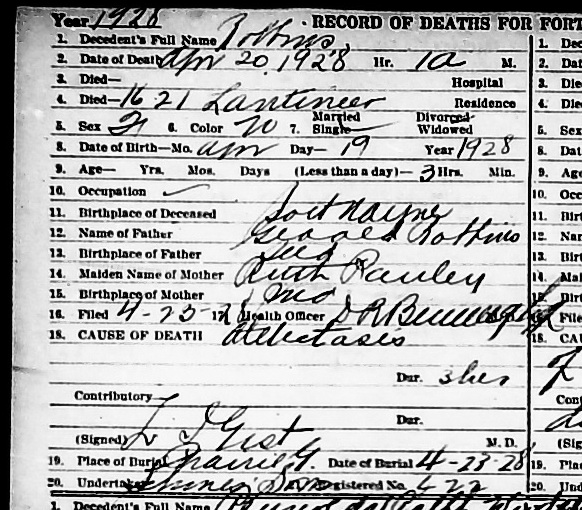 Year 1928 · RECORD OF DEATHS FOR FORT
1. Decedent's Full Name Robbins
2. Date of Death Apr 20, 1928 Hr. 1a M.
3. Died— Hospital
4. Died—1621 Residence
5. Sex F 6. Color W 7. Married Single— Divorced Widowed
8. Date of Birth—Mo. Apr Day— 19 Year 1928
9. Age— Yrs. Mos. Days (Less than a day)— 3 Hrs. Min.
10. Occupation ✓
11. Birthplace of Deceased Fort Wayne
12. Name of Father George Robbins
13. Birthplace of Father Ind
14. Maiden Name of Mother Ruth Pauley
15. Birthplace of Mother
16. Filed 4-23-28 17. Health Officer
18. CAUSE OF DEATH Atelectasis
Dur. 3 hrs
Contributory Dur.
(Signed) Gist M. D.
19. Place of Burial Prairie G. Date of Burial 4-23-28
20. Undertaker Registered No. 422
1. Decedent's Full Name
1. Dec
2. Dat
3. Die
4. Die
5. Sex
8. Dat
9. Age
10. Occ
11. Birt
12. Nan
13. Birt
14. Mai
15. Birt
16. File
18. CAU
Con
(Sig
19. Plac
20. Und